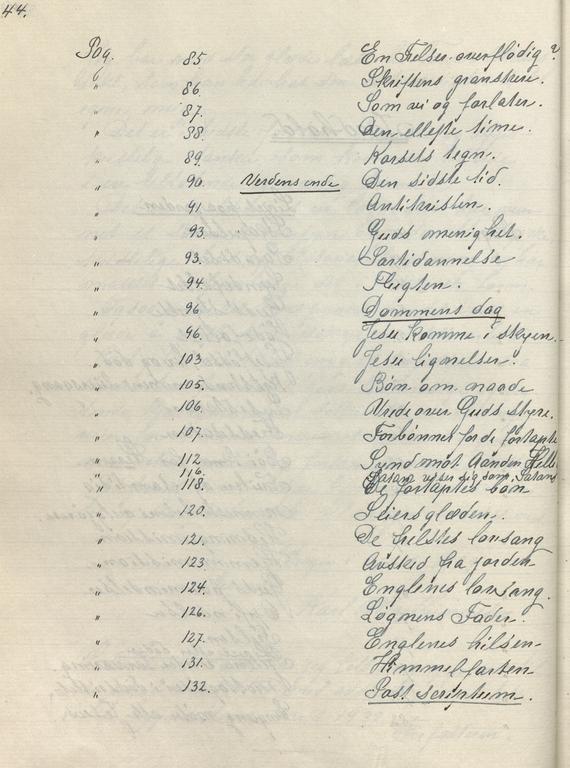 44.
Pag. 85 En Frelser overflødig?
" 86. Skriftens granskere.
" 87. Som vi og forlater.
" 88. Den ellefte time.
" 89. Korsets tegn.
" 90. Verdens ende Den sidste tid.
" 91 Antikristen.
" 93. Guds menighet.
" 93. Partidannelse
" 94. Flugten.
" 96 Dommens dag
" 96. Jesu komme i skyen.
" 103 Jesu lignelser.
" 105. Bøn om naade
" 106. Vrede over Guds styre.
" 107. Forbønner for de fortapte
" 112 Synd mot Aanden
" 116. Satan viser sig som Satan
" 118. De fortaptes bøn
" 120. Seiersglæden.
" 121. De frelstes lovsang
" 123. Avsked fra jorden
" 124. Englenes lovsang.
" 126. Løgnens Fader.
" 127. Englenes hilsen
" 131. Himmelfarten
" 132. Post scriptum.